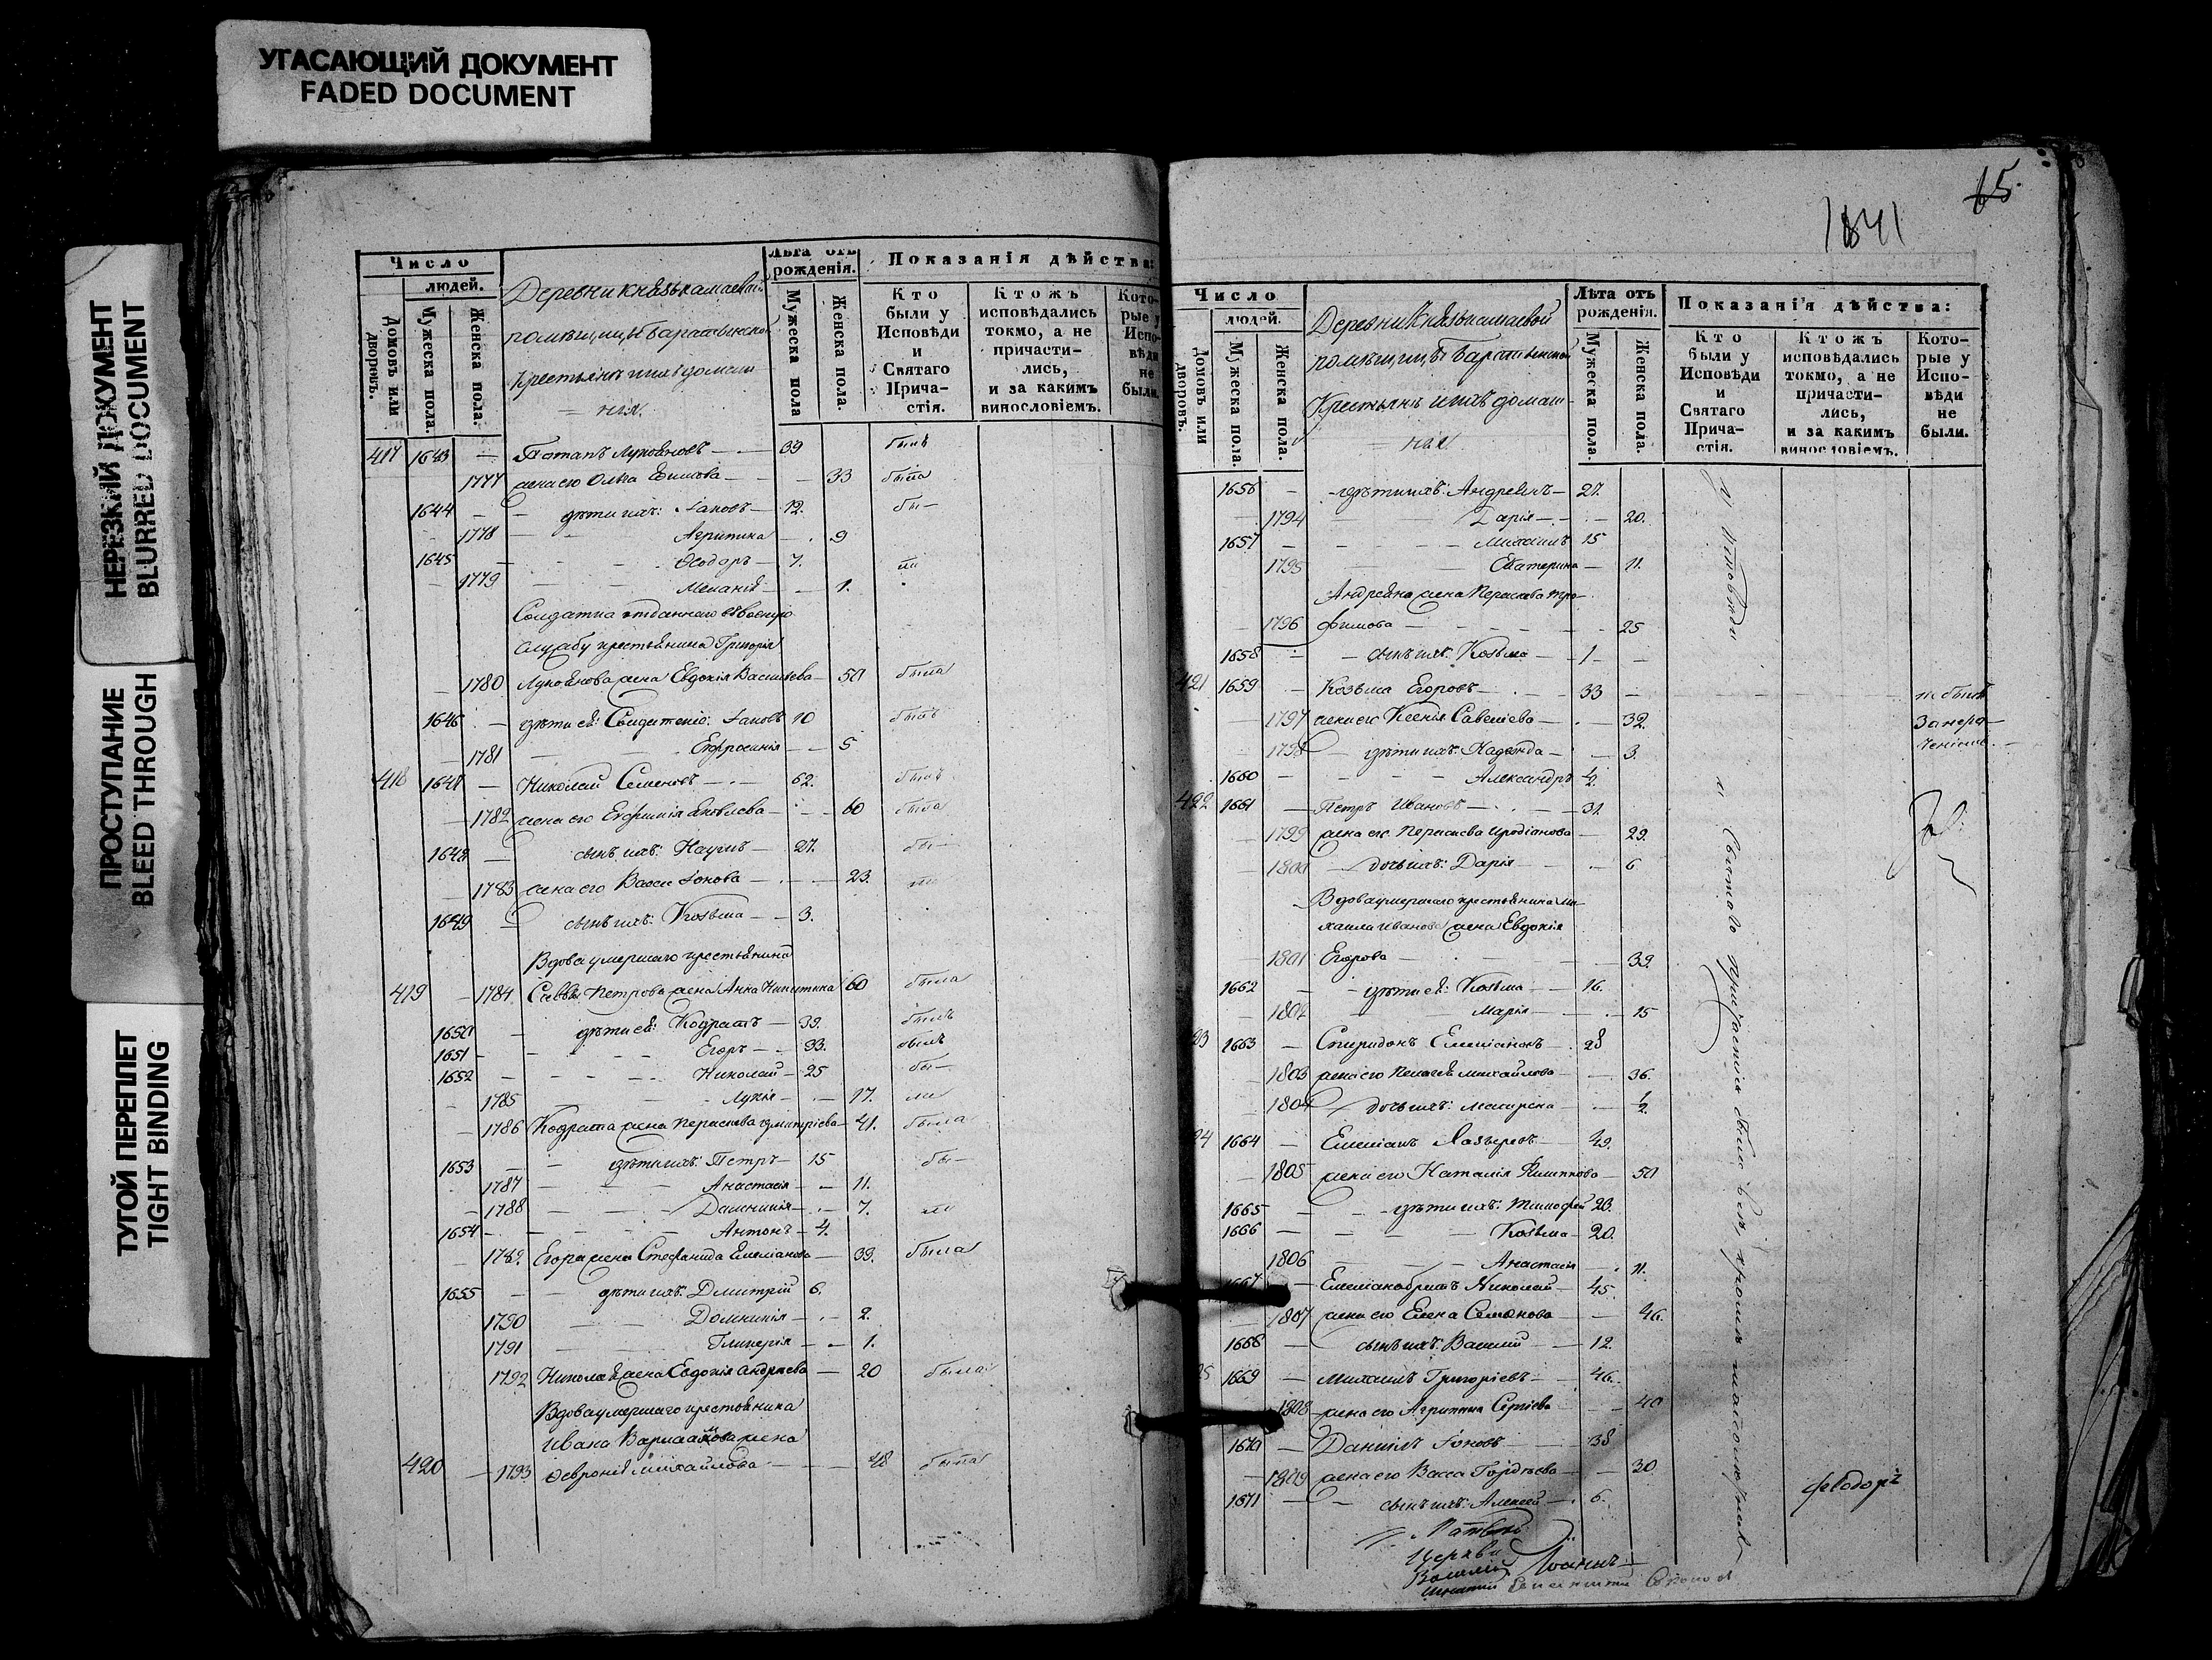 УГАСАЮЩИЙ ДОКУМЕНТ
FADED DOCUMENT
НЕРЕЗКИЙ ДОКУМЕНТ
BLURRED DOCUMENT
ПРОСТУПАНИЕ
BLEED THROUGH
ТУГОЙ ПЕРЕПЛЕТ
TIGHT BINDING
Число
людей.
Домовъ или дворовъ.
Мужеска пола.
Женска пола.
Деревни Князькамаевой
помѣщицы
Крестьянъ ихъ домаш
нихъ
Лѣта отъ рожденія.
Мужеска пола
Женска пола.
Показанія дѣйства:
Кто были у Исповѣди и Святаго Прича-стія.
Ктожъ исповѣдались токмо, а не причасти-лись, и за какимъ винословіемъ.
Кото-рые у Испо-вѣди не были.
417 1643 — Потапъ Лукояновъ — 39 былъ
1777 жена его Ольга Ефимова — 33 была
1644 — дѣти ихъ: Іаковъ — 12. бы—
1778 Агрипина — 9
1645 Ѳеодоръ — 7. ли
1779 Меланія — 1.
Солдатка отданнаго въ военную
службу крестьянина Григорія
1780 Лукоянова жена Евдокія Васильева — 50 была
1646 — дѣти ея: Іаковъ 10 былъ
1781 Ефросинія — 5
418 1647 — Николай Семеновъ — 62. былъ
1782 жена его Евфимія Яковлева — 60 была
1648 — сынъ ихъ: Наумъ — 27. бы—
1783 жена его Васса Іонова — 23. ли
1649 — сынъ ихъ: Козьма — 3.
Вдова умершаго крестьянина
419 — 1784 Саввы Петрова жена Анна Никитина 60 была
1650 — дѣти ея: Кодратъ — 39. былъ
1651 — Егоръ — 33. былъ
1652 — Николай — 25 бы—
1785 Лукія — 17. ли
1786 Кодрата жена Параскева Дмитріева — 41. была
1653 — дѣти ихъ: Петръ — 15 бы—
1787 Анастасія — 11.
1788 Домникія — 7. ли
1654 — Антонъ — 4.
1789. Егора жена Стефанида Емеліанова — 39. была
1655 — дѣти ихъ: Дмитрій 6.
1790 Домникія — 2.
1791 Гликерія — 1.
1792 Николая жена Евдокія Андреева — 20 была
Вдова умершаго крестьянина
Ивана Варламова жена
420 — 1793 Ѳевронія Михайлова — 48 была
1841
65
Число
людей.
Домовъ или дворовъ.
Мужеска пола.
Женска пола.
Деревни Князькамаевой
помѣщицы
Крестьянъ ихъ домаш-
нихъ
Лѣта отъ рожденія.
Мужеска пола.
Женска пола.
Показанія дѣйства:
Кто были у Исповѣди и Святаго Прича-стія.
Ктожъ исповѣдались токмо, а не причасти-лись, и за какимъ винословіемъ.
Кото-рые у Испо-вѣди не были.
1656 — дѣти ихъ: Андреянъ — 27.
1794 Дарія — 20.
1657 — Михаилъ 15
1795 Екатерина — 11.
Андреяна жена Параскева Тро-
1796 фимова — 25
1658 — сынъ ихъ: Козьма — 1
421 1659 — Козьма Егоровъ — 33 — не былъ
1797 жена его Ксенія Савельева — 32. За нера—
1798 дѣти ихъ: Надежда — 3. ченіемъ
1660 — Александръ ½
422 1661 — Петръ Ивановъ — 31.
1799 жена его Параскева Иродіонова 29.
1800 — дочь ихъ: Дарія — 6
Вдова умершаго крестьянина Ми-
хаила Иванова жена Евдокія
1801 Егорова — 39.
1662 — дѣти ея: Козьма — 16.
1802 Марія — 15
23 1663 — Спиридонъ Емеліановъ — 28
1803 жена его Пелагея Михайлова — 36.
1804 дочь ихъ: — ½
24 1664 — Емеліанъ Лазаревъ — 49.
1805 жена его Наталія Филиппова — 50
1665 — дѣти ихъ: Тимофей 23.
1666 — Козьма — 20.
1806 Анастасія — 11.
1667 — Емеліана братъ Николай — 45.
1807 жена его Елена Семенова — 46.
1668 — сынъ ихъ: Василій — 12.
25 1669 — Михаилъ Григорьевъ — 46.
1808 жена его Агрипина Сергіева — 40
1670 — Даніилъ Іоновъ — 38
1809 жена его Васса Гордѣева — 30
1671 — сынъ ихъ: Алексей — 6.
Церкви
Іоаннъ
феодоръ